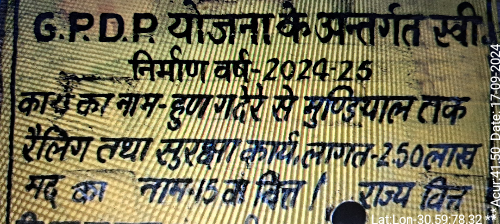 G.P.D.P. योजना के अन्तर्गत स्वी.
निर्माण वर्ष-2024-25
कार्य का नाम-हुण गदेरे से मुण्डियाल तक
रैलिंग तथा सुरक्षा कार्य, लागत-2.50 लाख
मद का नाम-15 वां वित्त / राज्य वित्त
Lat Lon-30.59:78.32
Date: 17-09-2024